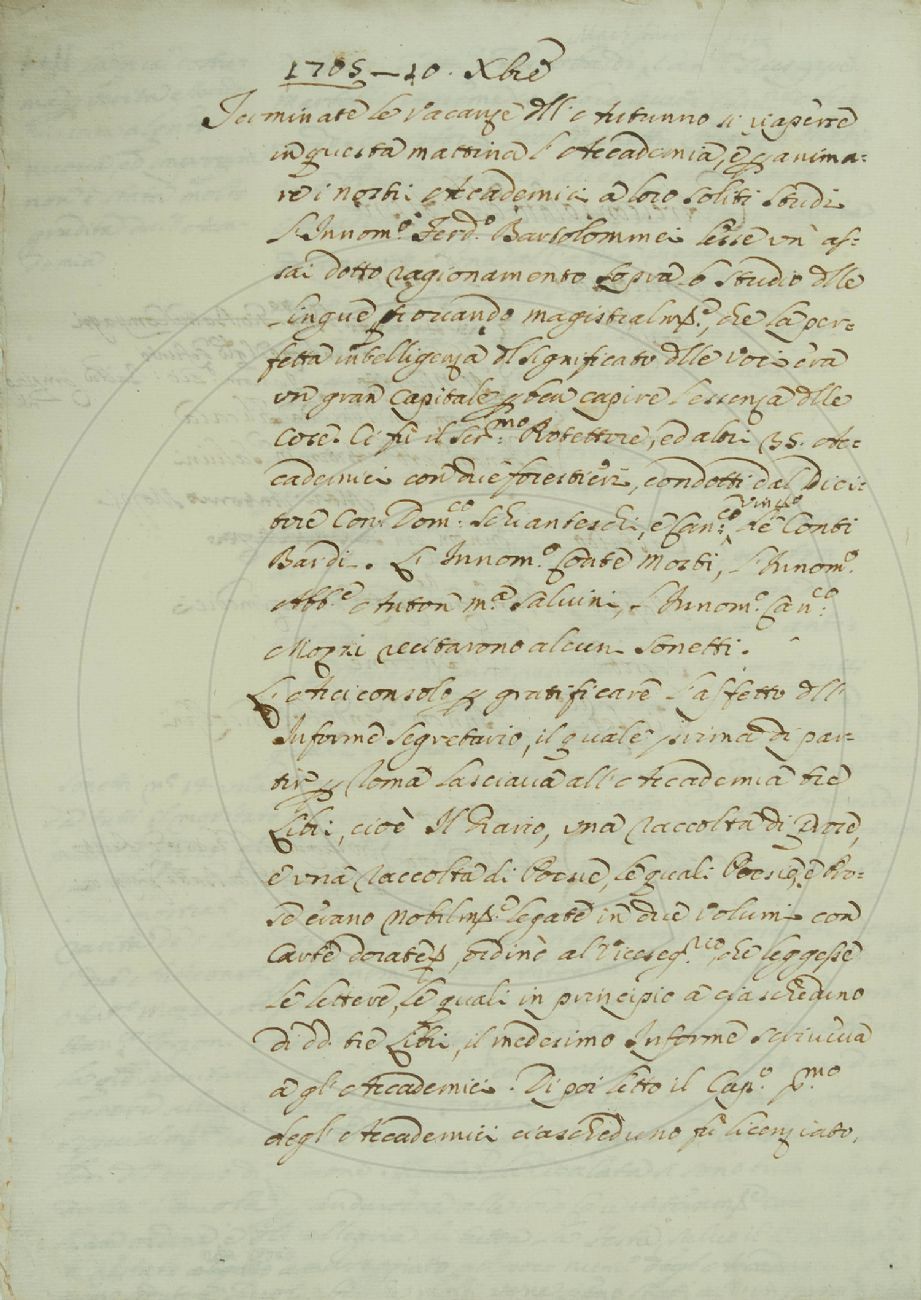 1705 – 10. Xbre
Terminate le vacanze dll' Autunno si riaperse
in questa mattina l'Accademia, e p anima-
re i nostri Accademici a loro soliti studi
L'Innom.º Ferd.º Bartolommei lesse un' as-
sai dotto ragionamento sopra lo studio dlle
lingue, toccando magistralm.ᵉ, che la per-
fetta intelligenza dl significato dlle voci era
un gran Capitale p ben capire l'essenza dlle
Cose. Ci fu il Ser.ᵐᵒ Protettore, ed altri 35. Ac-
cademici con due forestieri, condotti dal Dici-
tore Con. Dom.ᶜᵒ Schianteschi, e Can.ᶜᵒ Vinc.º de Conti
Bardi. L'Innom.º Conte Morti, L'Innom.º
Abb.ᵉ Anton M.ª Salvini, L'Innom.º Can.ᶜᵒ
Mozzi recitarono alcuni Sonetti.
L'Arciconsolo p gratificare l'affetto dll'
Informe Segretario, il quale prima di par-
tir p Roma lasciava all'Accademia tre
Libri, cioè Il Diario, una raccolta di Prose,
e una raccolta di Poesie, le quali Poesie, e Pro-
se erano nobilm.ᵉ legate in due volumi con
Carte dorate, ordinò al Viceseg.ʳⁱᵒ, che leggesse
le lettere, le quali in principio a ciascheduno
di dd. tre Libri, il medesimo Informe scriveva
a gl'Accademici. Di poi letto il Cap.º p.ᵐᵒ
degl'Accademici ciascheduno fu licenziato.